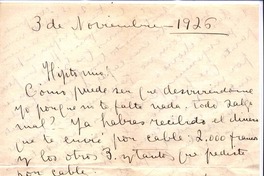 3 de Noviembre - 1926
Hijito mio:
Cómo puede ser que desvirviendome
yo porque ni te falte nada, todo salga
mal? Ya habras recibido el dinero
que te envié por cable: 2.000 francos
y los otros 3. y tantos que pediste
por cable.